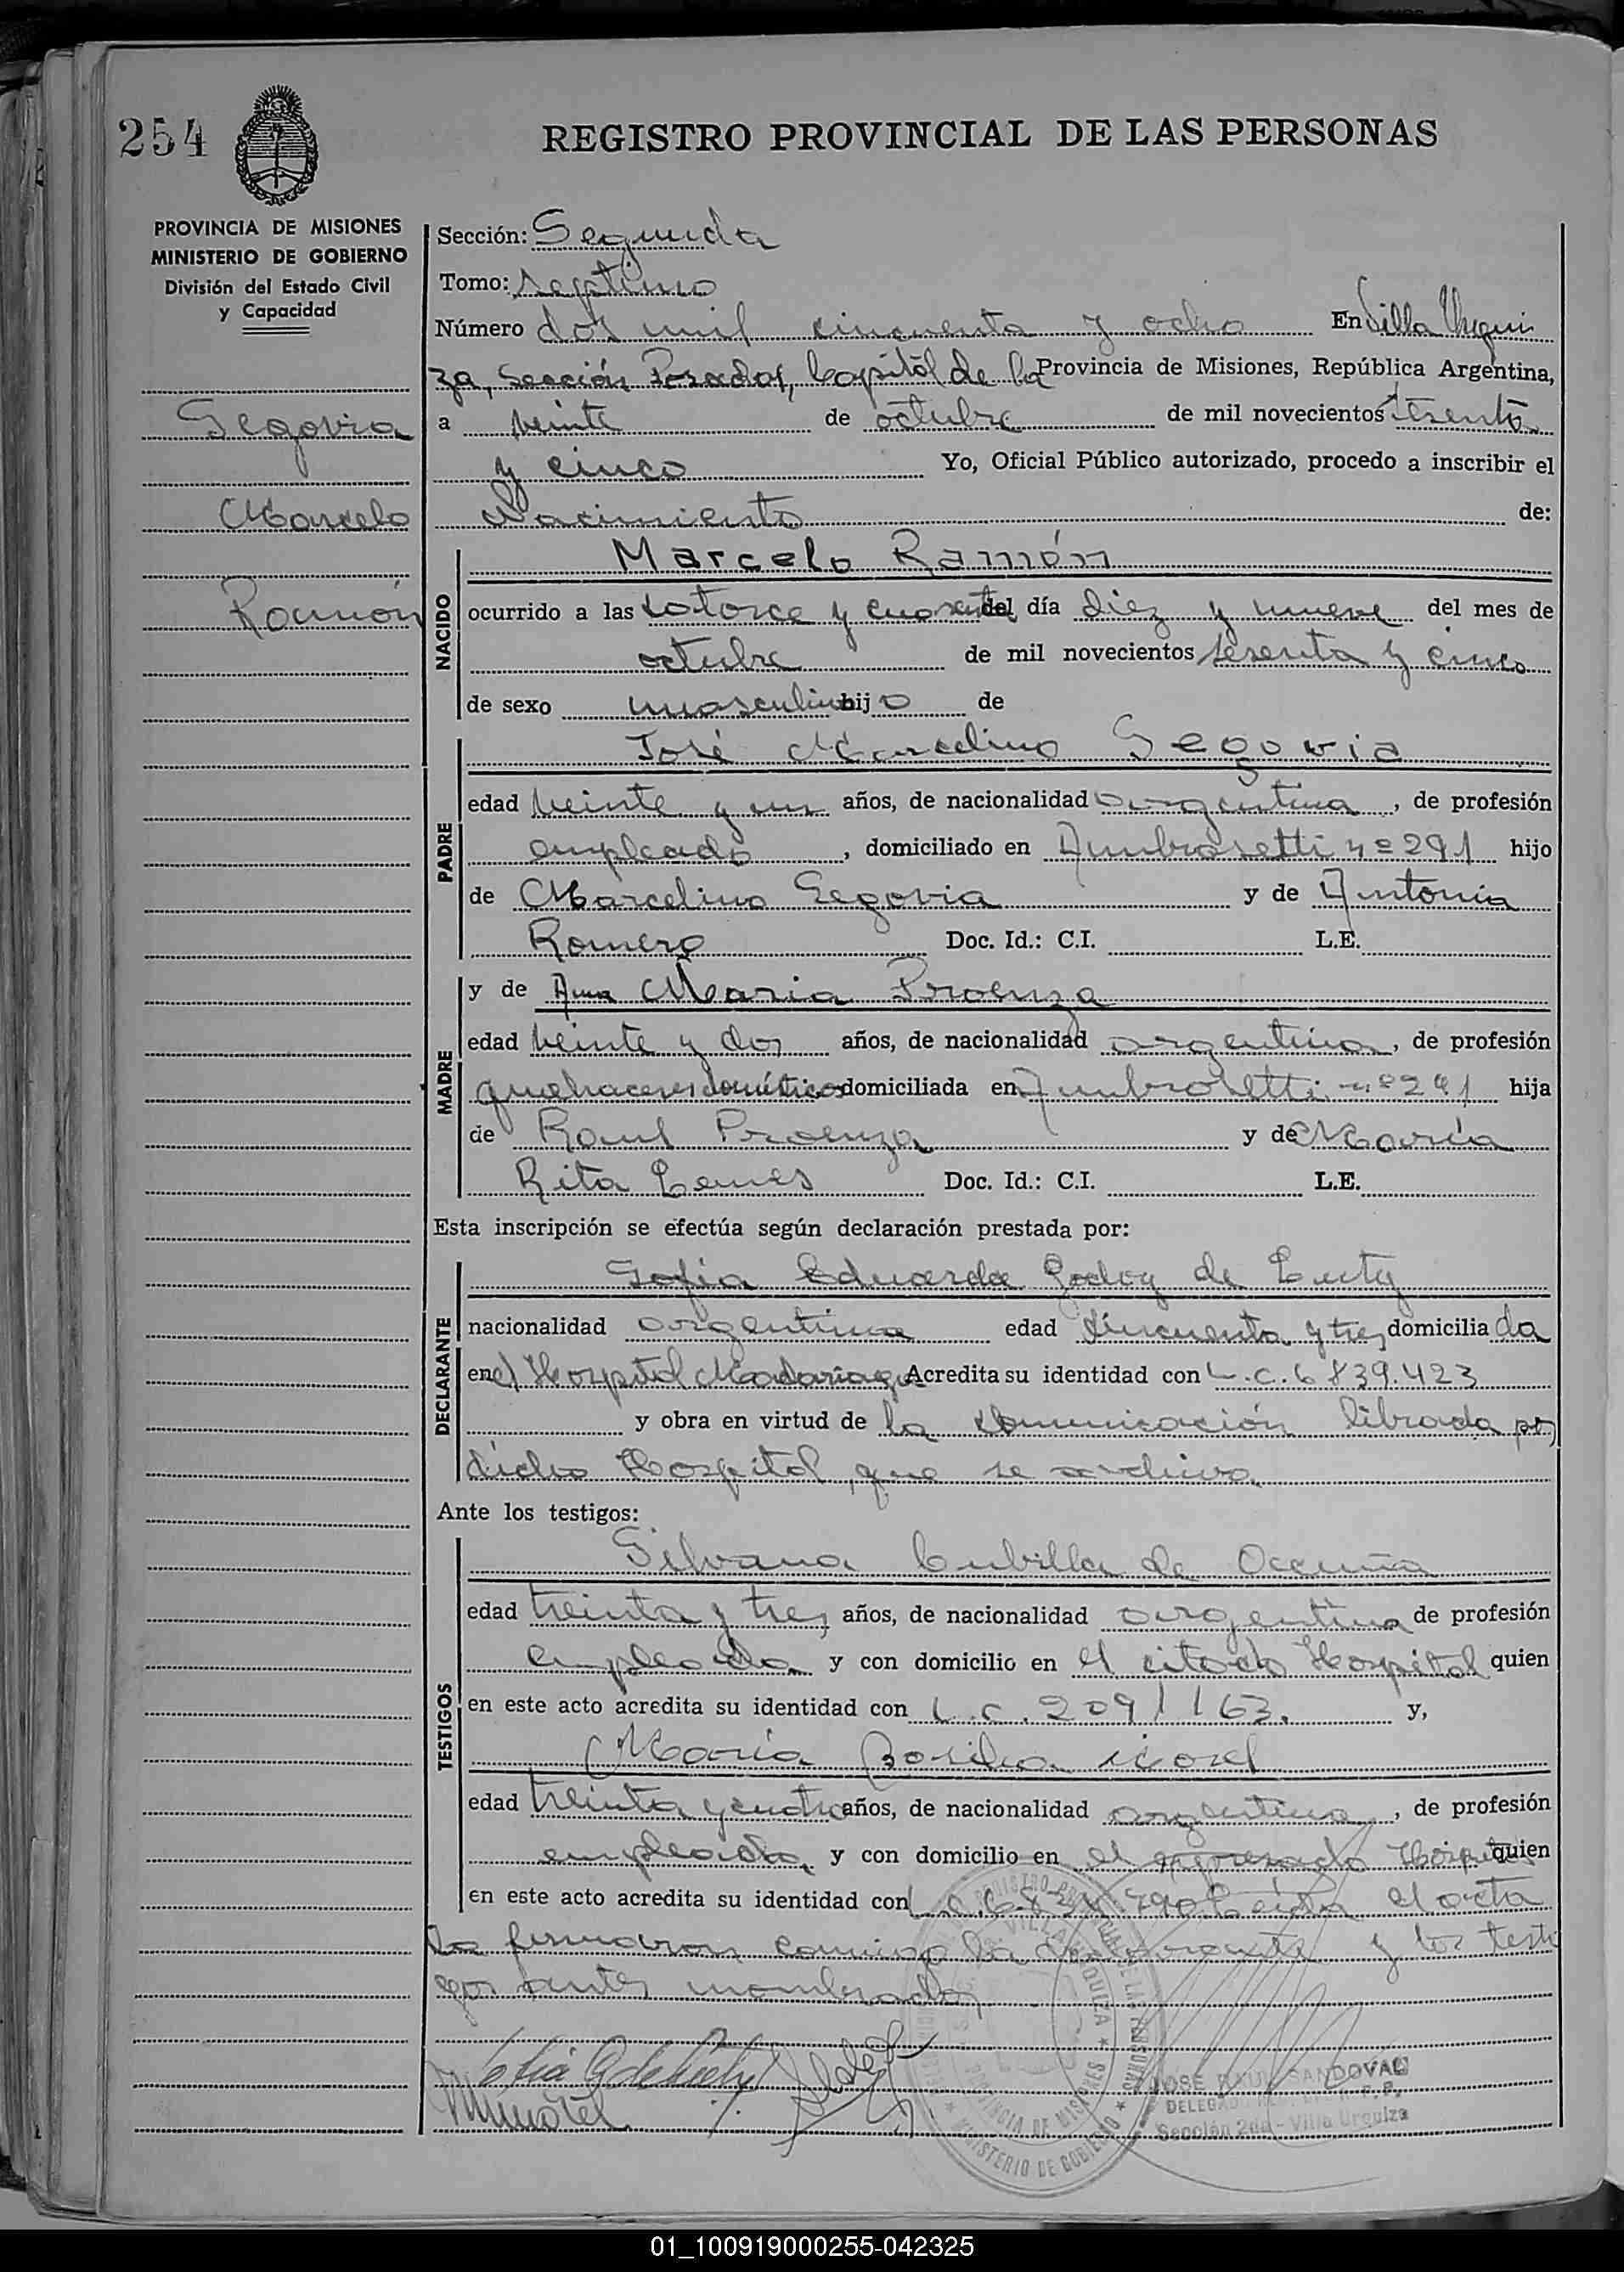 254
REGISTRO PROVINCIAL DE LAS PERSONAS
PROVINCIA DE MISIONES
MINISTERIO DE GOBIERNO
División del Estado Civil
y Capacidad
Segovia
Marcelo
Ramón
Sección: Segunda
Tomo: septimo
Número dos mil cincuenta y ocho En Villa Urqui
za, Sección Posadas, Capital de la Provincia de Misiones, República Argentina,
a veinte de octubre de mil novecientos sesenta
y cinco Yo, Oficial Público autorizado, procedo a inscribir el
Nacimiento de:
NACIDO
Marcelo Ramón
ocurrido a las catorce y cuarenta del día diez y nueve del mes de
octubre de mil novecientos sesenta y cinco
de sexo masculino hijo de
PADRE
José Marcelino Segovia
edad veinte y un años, de nacionalidad argentina, de profesión
empleado, domiciliado en Ambrosetti nº 291 hijo
de Marcelino Segovia y de Antonia
Romero Doc. Id.: C.I. L.E.
MADRE
y de Ana Maria Proenza
edad veinte y dos años, de nacionalidad argentina, de profesión
quehaceres domésticos domiciliada en Ambrosetti nº 291 hija
de Raul Proenza y de María
Rita Lemes Doc. Id.: C.I. L.E.
Esta inscripción se efectúa según declaración prestada por:
DECLARANTE
Sofia Eduarda Godoy de
nacionalidad argentina edad cincuenta y tres domiciliada
en el Hospital Madariaga Acredita su identidad con L.C. 6839.423
y obra en virtud de la comunicación librada por
dicho Hospital, que se archiva.
Ante los testigos:
TESTIGOS
Silvana Cubilla de Acuña
edad treinta y tres años, de nacionalidad argentina de profesión
empleada y con domicilio en el citado Hospital quien
en este acto acredita su identidad con L.C. 2091163. y,
María Basilia
edad treinta y cuatro años, de nacionalidad argentina, de profesión
empleada, y con domicilio en el expresado Hospital quien
en este acto acredita su identidad con L.C. Leída el acta
la firmaron conmigo la declarante y los testi
gos antes nombrados
REGISTRO PROVINCIAL DE LAS PERSONAS
VILLA URQUIZA
PROVINCIA DE MISIONES
MINISTERIO DE GOBIERNO
JOSE RAUL SANDOVAL
Sección 2da - Villa Urquiza
01_100919000255-042325